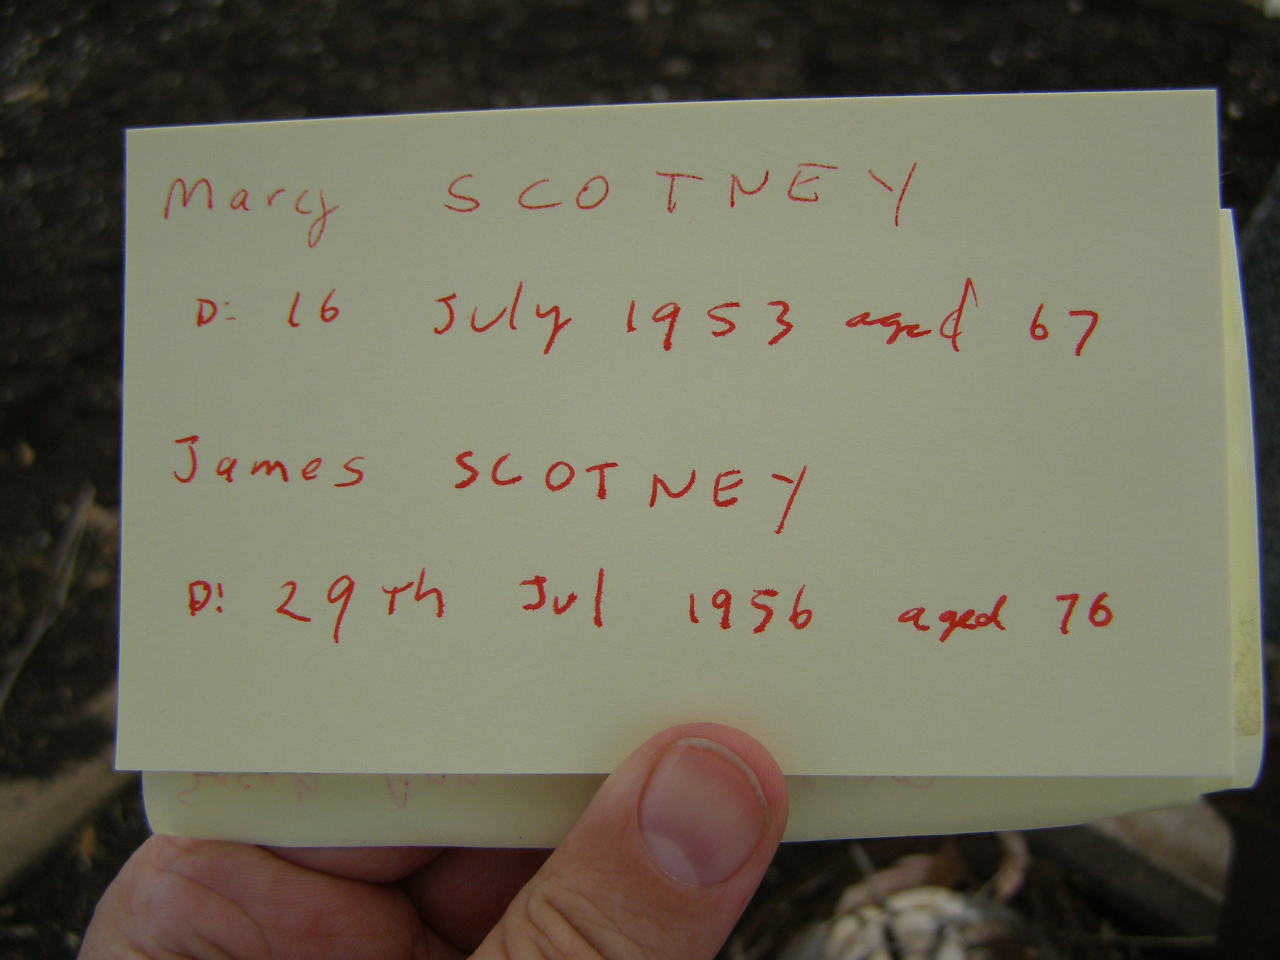 Mary SCOTNEY
D: 16 July 1953 aged 67
James SCOTNEY
D: 29Th Jul 1956 aged 76